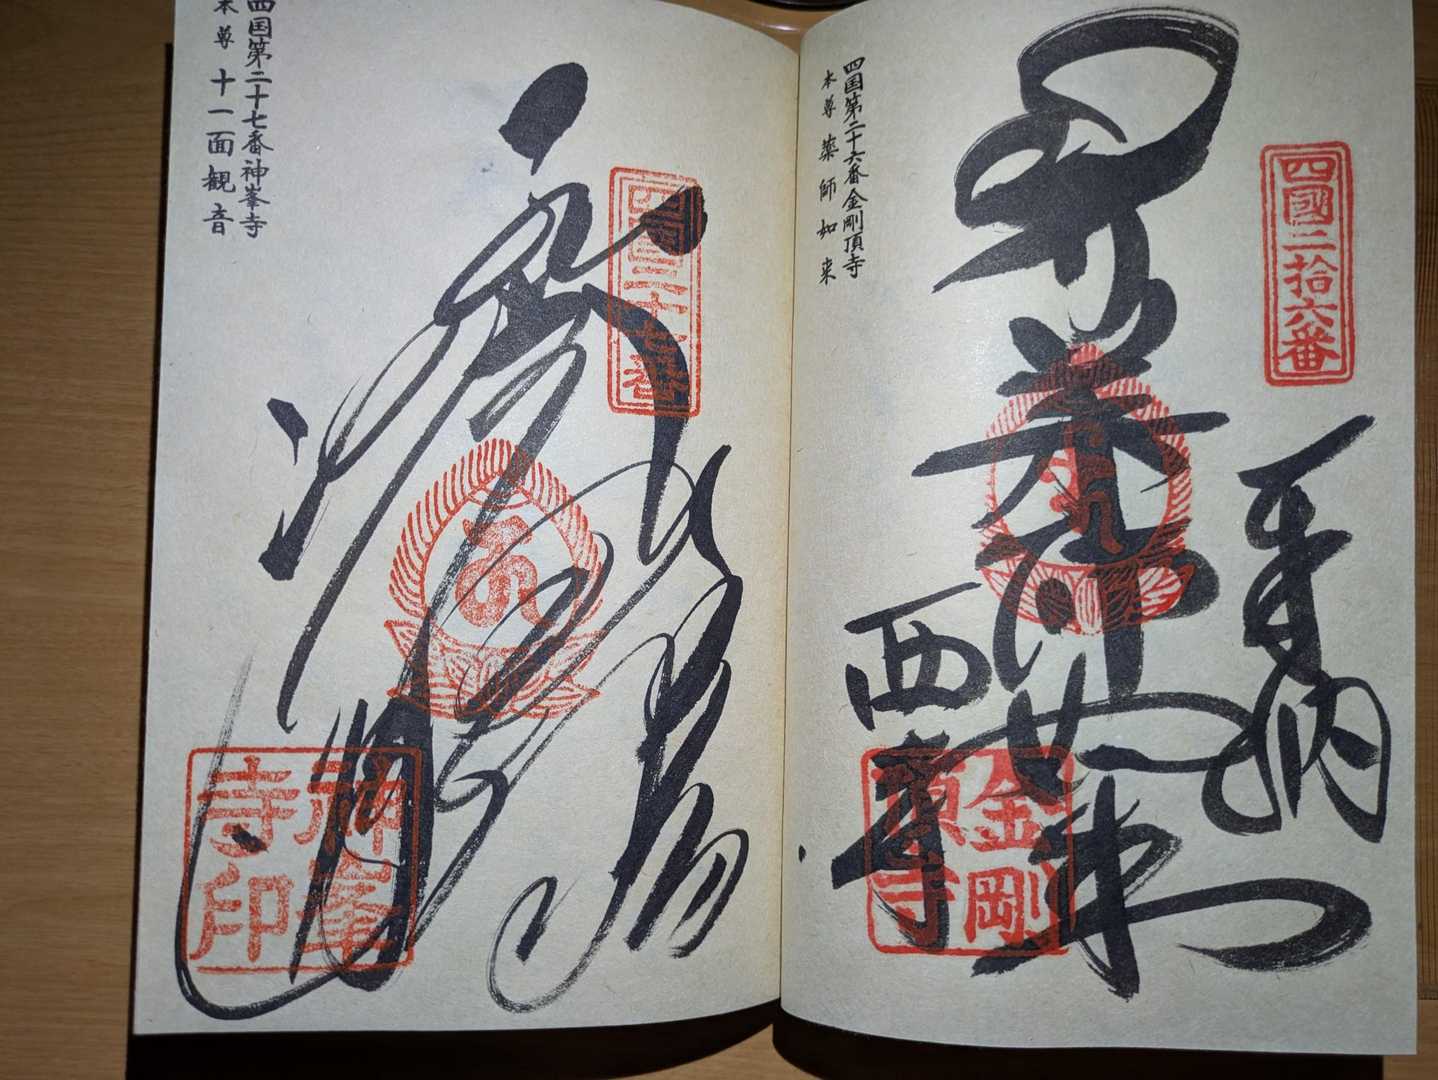 四國二拾六番
奉納
薬師如来
西寺
金剛頂寺
四国第二十六番金剛頂寺
本尊 薬師如来
四國二十七番
神峯寺印
四国第二十七番神峯寺
本尊 十一面観音